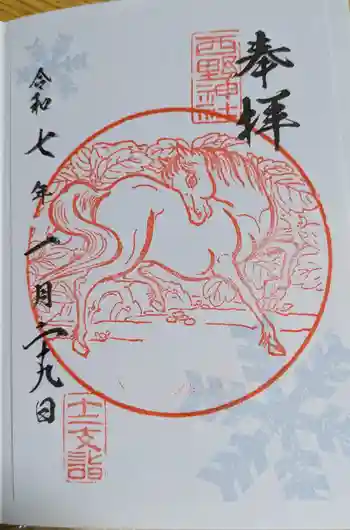 奉拝
西野神社
令和七年一月二十九日
十二支詣